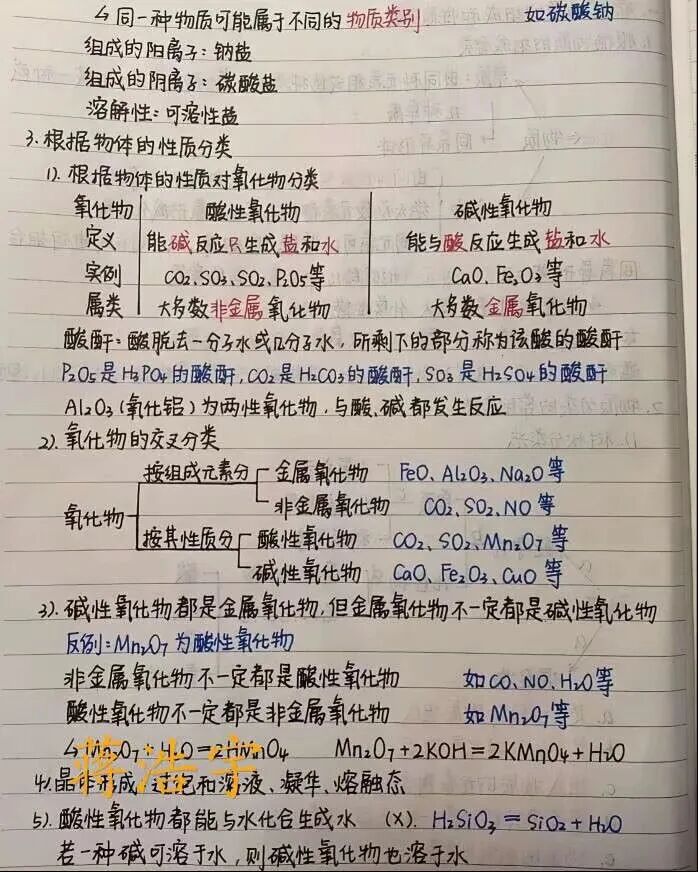 ↳同一种物质可能属于不同的物质类别 如碳酸钠
组成的阳离子：钠盐
组成的阴离子：碳酸盐
溶解性：可溶性盐
3.根据物体的性质分类
1).根据物体的性质对氧化物分类
氧化物 酸性氧化物 碱性氧化物
定义 能碱反应只生成盐和水 能与酸反应生成盐和水
实例 CO₂、SO₃、SO₂、P₂O₅等 CaO、Fe₂O₃等
属类 大多数非金属氧化物 大多数金属氧化物
酸酐：酸脱去一分子水或几分子水，所剩下的部分称为该酸的酸酐
P₂O₅是H₃PO₄的酸酐，CO₂是H₂CO₃的酸酐，SO₃是H₂SO₄的酸酐
Al₂O₃（氧化铝）为两性氧化物，与酸、碱都发生反应
2).氧化物的交叉分类
按组成元素分 金属氧化物 FeO、Al₂O₃、Na₂O等
非金属氧化物 CO₂、SO₂、NO等
氧化物
按其性质分 酸性氧化物 CO₂、SO₂、Mn₂O₇等
碱性氧化物 CaO、Fe₂O₃、CuO等
3).碱性氧化物都是金属氧化物，但金属氧化物不一定都是碱性氧化物
反例：Mn₂O₇为酸性氧化物
非金属氧化物不一定都是酸性氧化物 如CO、NO、H₂O等
酸性氧化物不一定都是非金属氧化物 如Mn₂O₇等
↳Mn₂O₇+H₂O=2HMnO₄ Mn₂O₇+2KOH=2KMnO₄+H₂O
蒋浩宇
4).晶体形成：饱和溶液、凝华、熔融态
5).酸性氧化物都能与水化合生成水 (×). H₂SiO₃=SiO₂+H₂O
若一种碱可溶于水，则碱性氧化物也溶于水